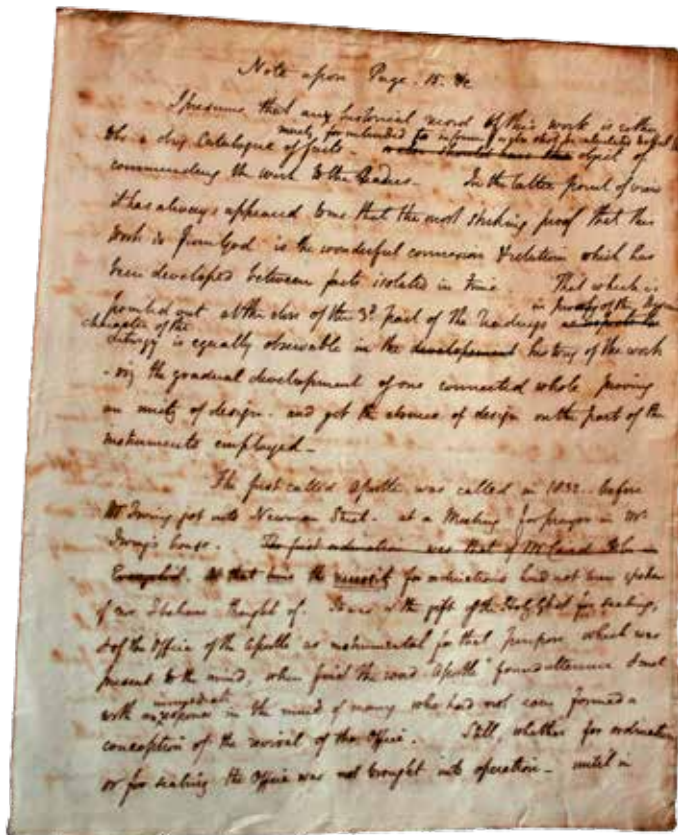 Note upon Page. 15. &c
I presume that any historial record of this work is either
merely for intended to inform
a dry Catalogue of facts - object of
commending the work to the Readers - In the latter point of view
it has always appeared to me that the most striking proof that this
Work is from God is the wonderful connexion & relation which has
been developed between facts isolated in time. That which is
pointed out at the close of the 3d part of the Readings in
chapter of the
Liturgy is equally observable in the developement history of the work
- viz the gradual development of one connected whole proving
an unity of design - and yet the absence of design on the part of the
instruments employed -
The first called Apostle was called in 1832 - before
Mr Irving got into Newman Street - at a Meeting for prayer in Mr
Irving's house. The first ordination was that of Mr Caird
Evangelist. At that time the necessity for ordinations had not been spoken
of nor thought of. It was the gift of the Holy Ghost for sealing,
& of the Office of the Apostle as instrumental for that purpose which was
present to the mind, when first the word Apostle found utterance & met
immediate
with response in the mind of many who had not even formed a
conception of the revival of the Office. Still, whether for ordination
or for sealing the Office was not brought into operation - until in